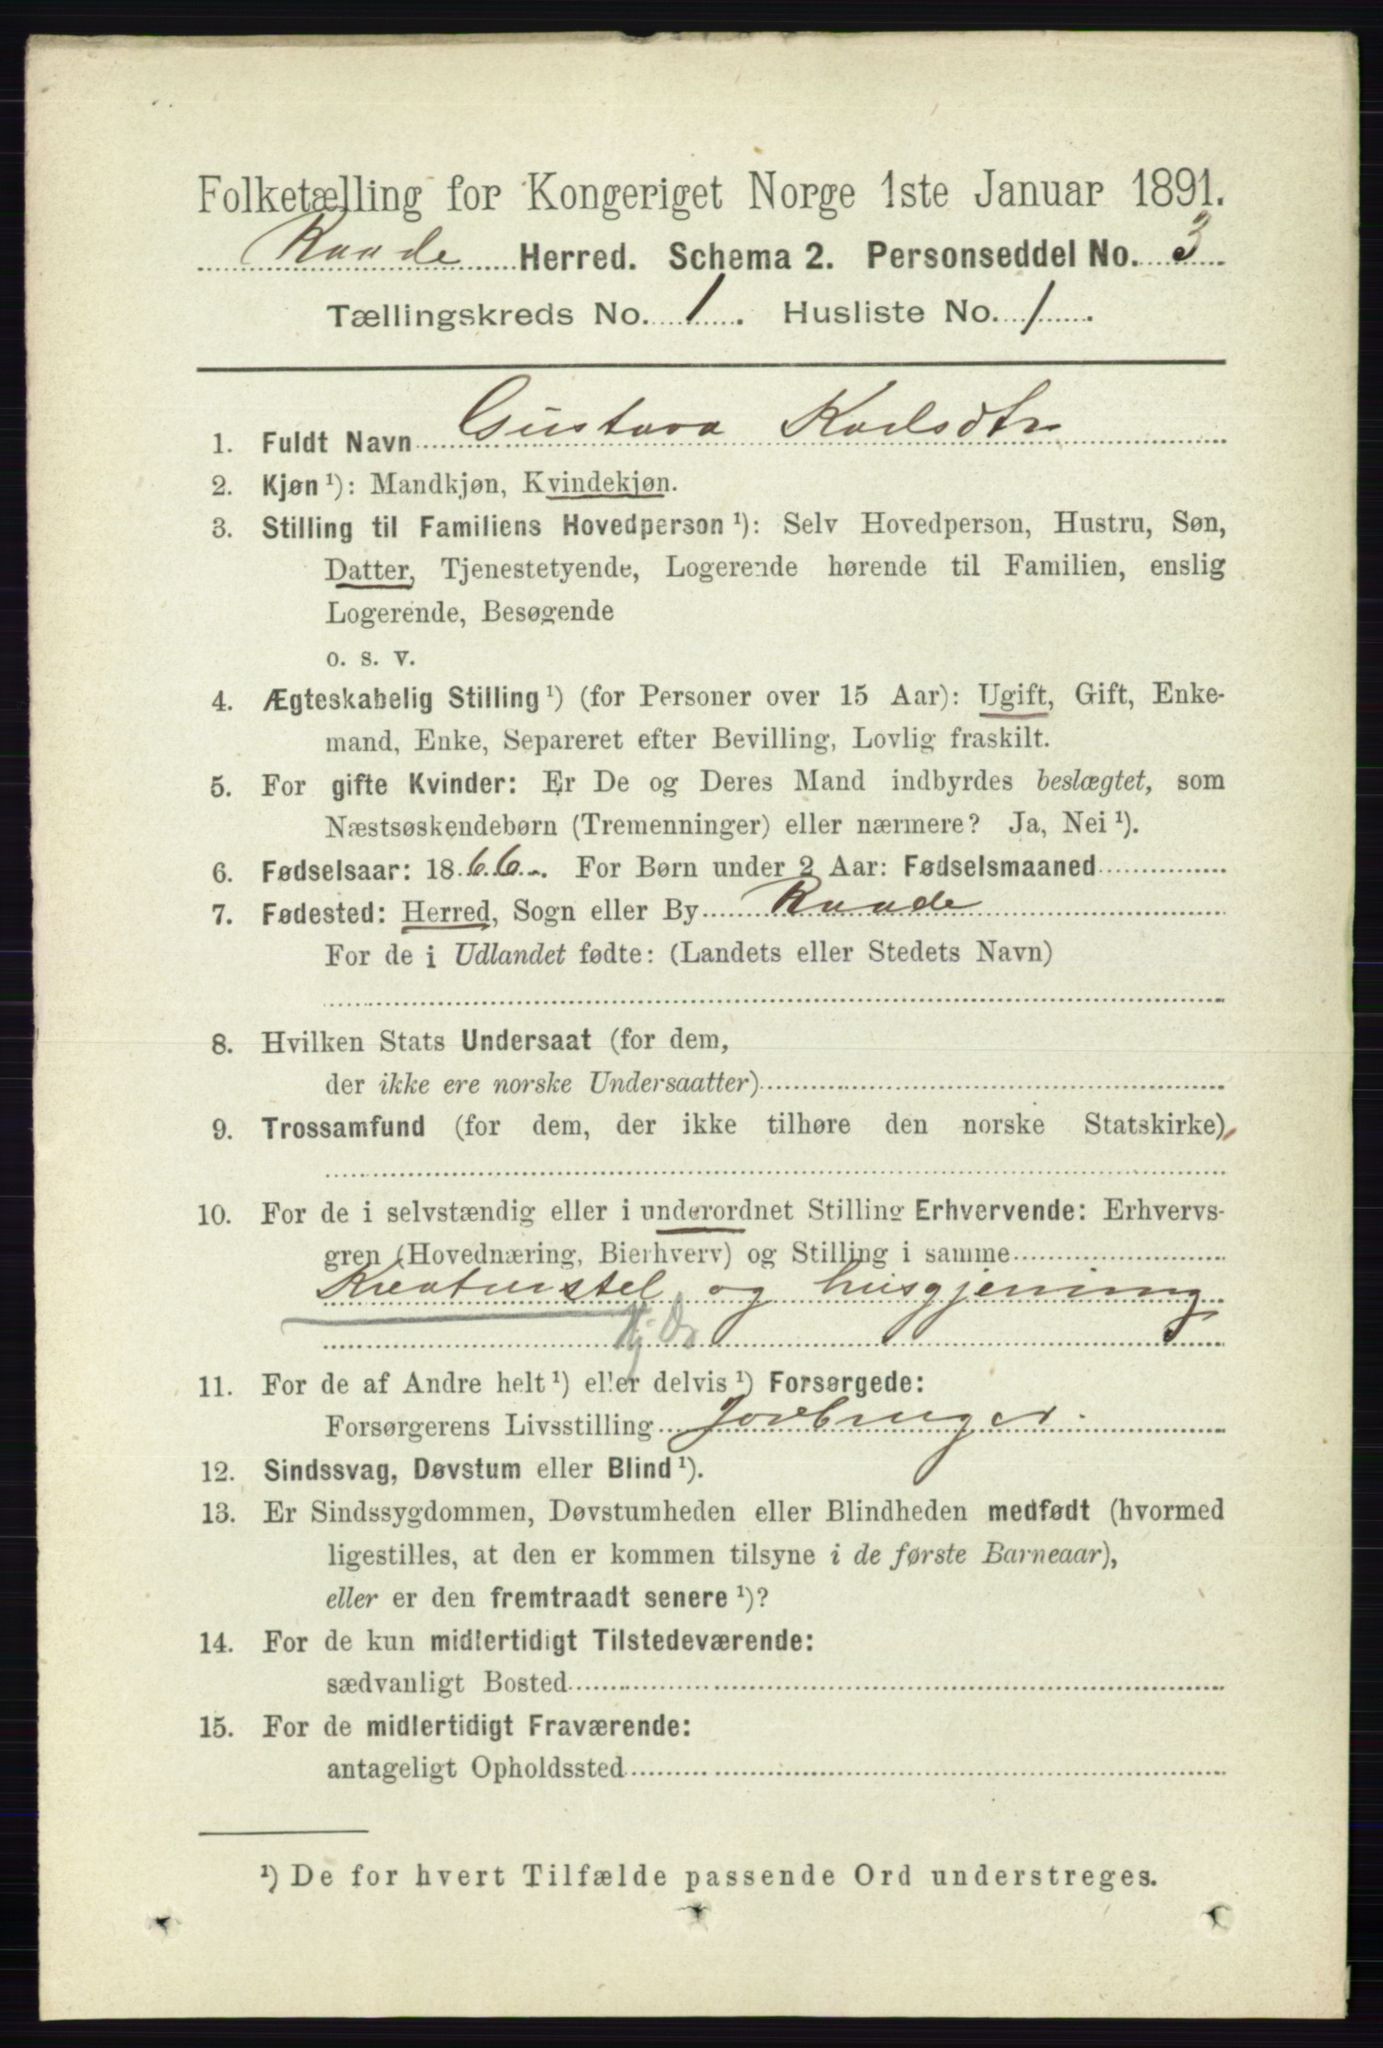 Folketælling for Kongeriget Norge 1ste Januar 1891.
Raade Herred. Schema 2. Personseddel No. 3
Tællingskreds No. 1. Husliste No. 1.
1. Fuldt Navn Gustava Karlsdtr
2. Kjøn ¹): Mandkjøn, Kvindekjøn.
3. Stilling til Familiens Hovedperson ¹): Selv Hovedperson, Hustru, Søn,
Datter, Tjenestetyende, Logerende hørende til Familien, enslig
Logerende, Besøgende
o. s. v.
4. Ægteskabelig Stilling ¹) (for Personer over 15 Aar): Ugift, Gift, Enke-
mand, Enke, Separeret efter Bevilling, Lovlig fraskilt.
5. For gifte Kvinder: Er De og Deres Mand indbyrdes beslægtet, som
Næstsøskendebørn (Tremenninger) eller nærmere? Ja, Nei ¹).
6. Fødselsaar: 1866. For Børn under 2 Aar: Fødselsmaaned
7. Fødested: Herred, Sogn eller By Raade
For de i Udlandet fødte: (Landets eller Stedets Navn)
8. Hvilken Stats Undersaat (for dem,
der ikke ere norske Undersaatter)
9. Trossamfund (for dem, der ikke tilhøre den norske Statskirke)
10. For de i selvstændig eller i underordnet Stilling Erhvervende: Erhvervs-
gren (Hovednæring, Bierhverv) og Stilling i samme
Kreaturstel og husgjerning
11. For de af Andre helt ¹) eller delvis ¹) Forsørgede:
Forsørgerens Livsstilling Jordbruger.
12. Sindssvag, Døvstum eller Blind ¹).
13. Er Sindssygdommen, Døvstumheden eller Blindheden medfødt (hvormed
ligestilles, at den er kommen tilsyne i de første Barneaar),
eller er den fremtraadt senere ¹)?
14. For de kun midlertidigt Tilstedeværende:
sædvanligt Bosted
15. For de midlertidigt Fraværende:
antageligt Opholdssted
¹) De for hvert Tilfælde passende Ord understreges.